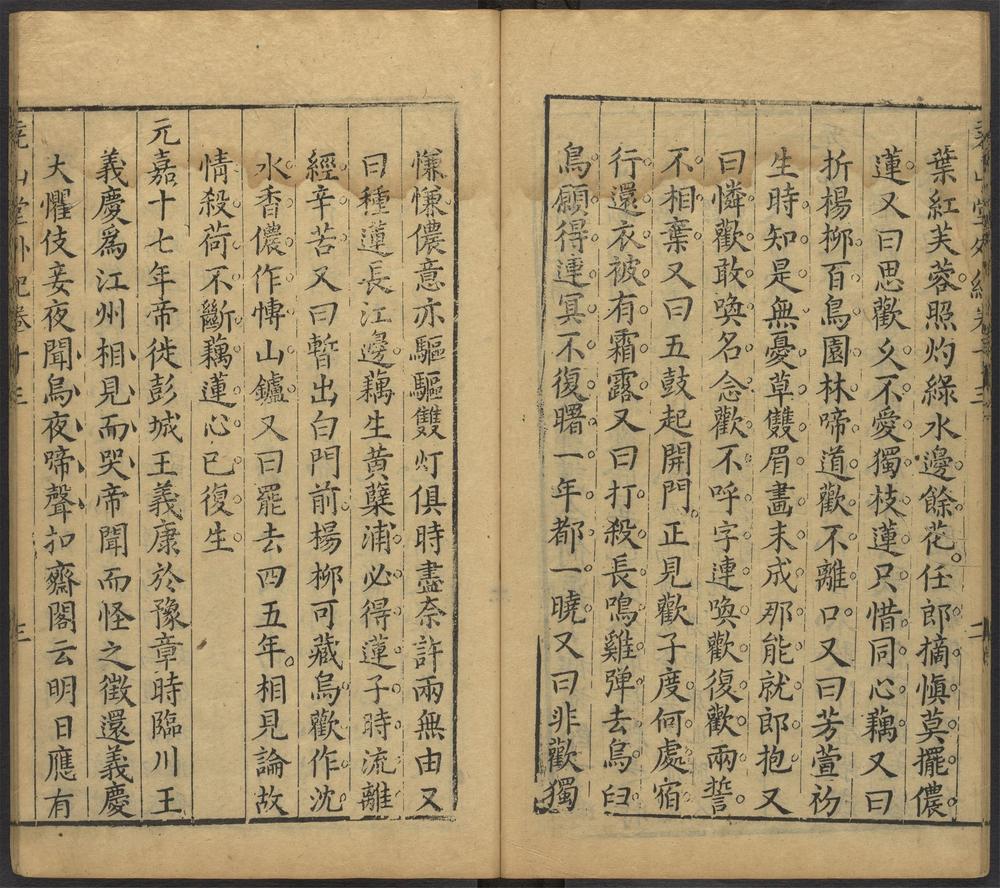 葉紅芙蓉照灼綠水邊餘花任郎摘愼莫擺儂
蓮又曰思歡久不愛獨枝蓮只惜同心藕又曰
折楊栁百鳥園林啼道歡不離口又曰芳萱初
生時知是無憂草雙眉畫未成那能就郎抱又
曰憐歡敢喚名念歡不呼字連喚歡復歡兩誓
不相棄又曰五鼓起開門正見歡子度何處宿
行還衣被有霜露又曰打殺長鳴雞彈去烏臼
鳥願得連冥不復曙一年都一曉又曰非歡獨
慊慊儂意亦驅驅雙灯俱時盡奈許兩無由又
曰種蓮長江邊藕生黄蘗浦必得蓮子時流離
經辛苦又曰暫出白門前楊栁可藏烏歡作沈
水香儂作博山鑪又曰罷去四五年相見論故
情殺荷不斷藕蓮心已復生
元嘉十七年帝徙彭城王義康於豫章時臨川王
義慶爲江州相見而哭帝聞而怪之徵還義慶
大懼伎妾夜聞烏夜啼聲扣齋閣云明日應有
堯山堂外紀卷十三
三